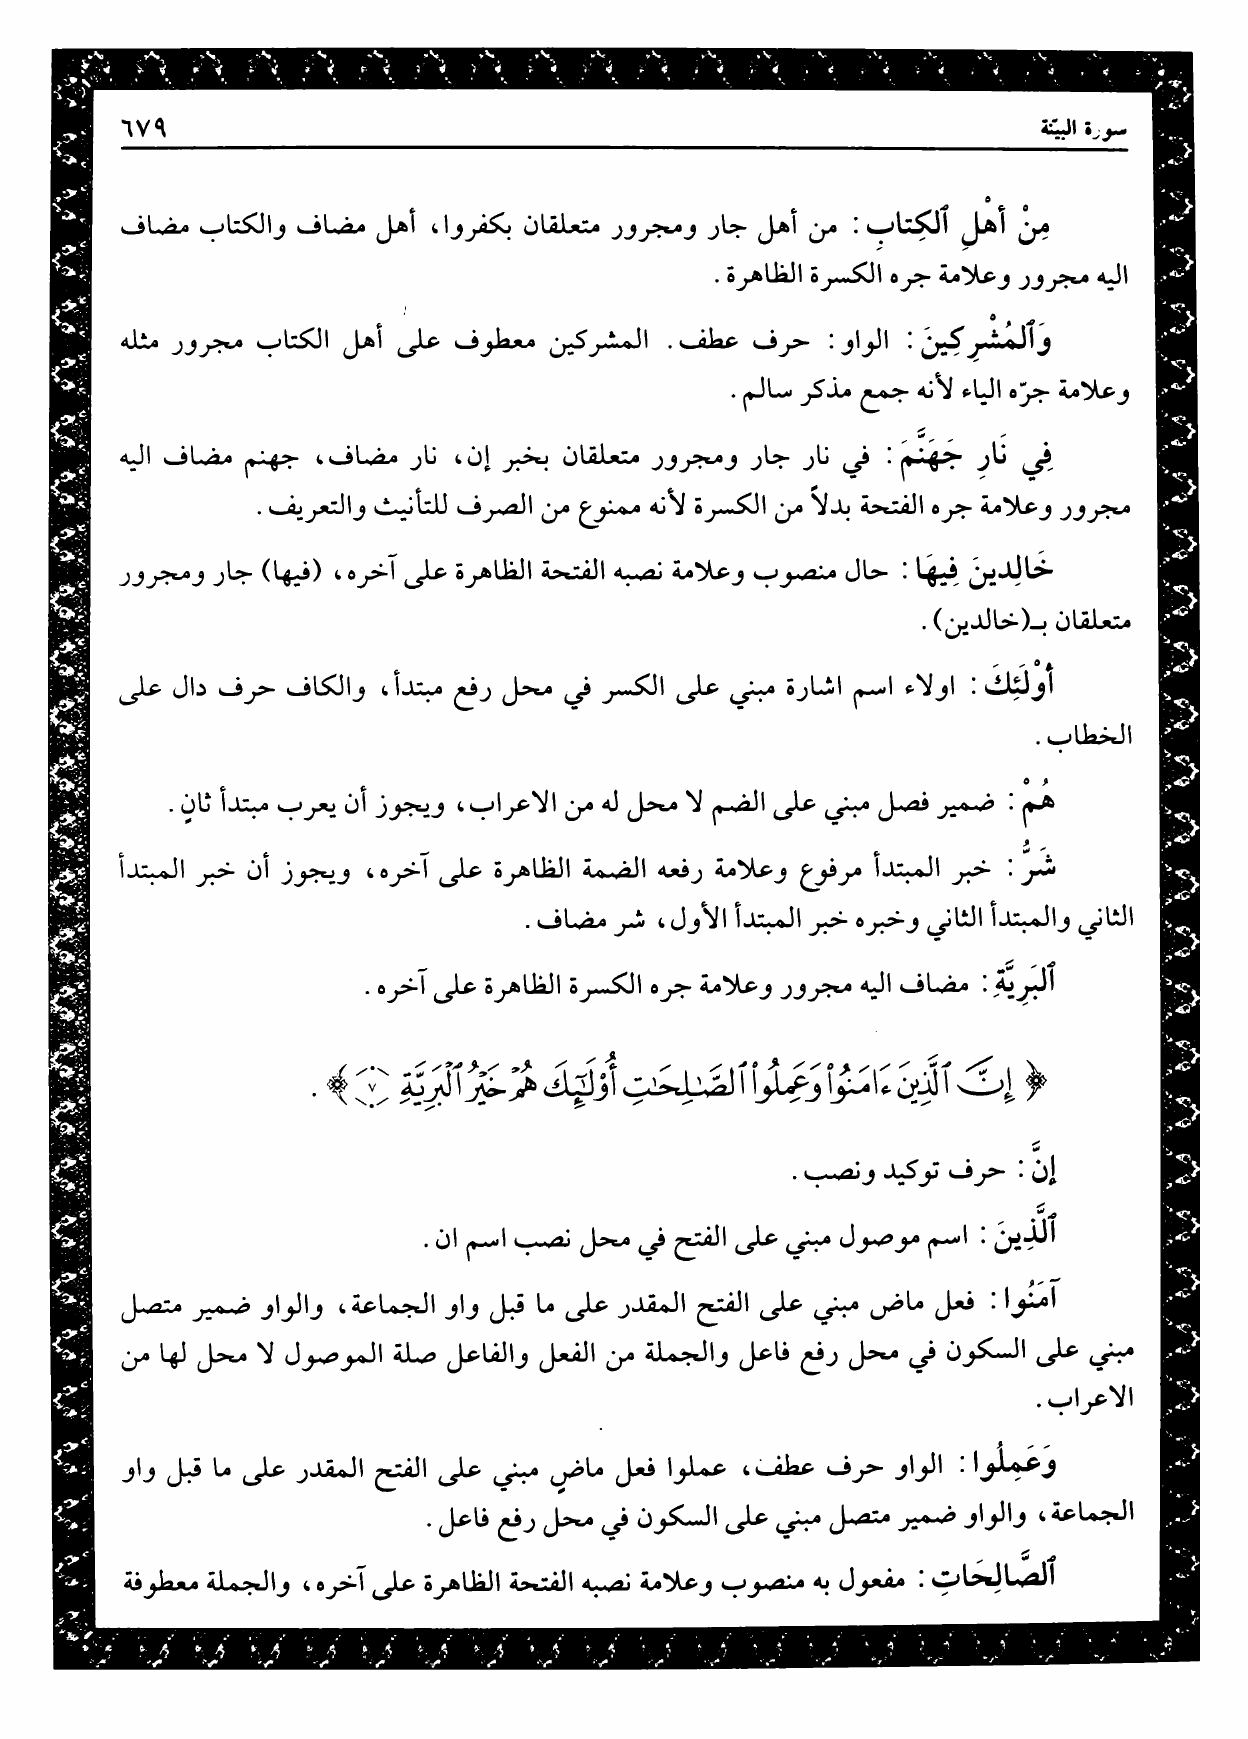 سورة البيّنة ٦٧٩
مِنْ أَهْلِ ٱلكِتابِ : من أهل جار ومجرور متعلقان بكفروا، أهل مضاف والكتاب مضاف
اليه مجرور وعلامة جره الكسرة الظاهرة .
وَٱلمُشْرِكِينَ : الواو: حرف عطف. المشركين معطوف على أهل الكتاب مجرور مثله
وعلامة جرّه الياء لأنه جمع مذكر سالم.
فِي نَارِ جَهَنَّمَ : في نار جار ومجرور متعلقان بخبر إن، نار مضاف، جهنم مضاف اليه
مجرور وعلامة جره الفتحة بدلاً من الكسرة لأنه ممنوع من الصرف للتأنيث والتعريف .
خَالِدينَ فِيهَا : حال منصوب وعلامة نصبه الفتحة الظاهرة على آخره، (فيها) جار ومجرور
متعلقان بـ(خالدين) .
أُوْلَئِكَ : اولاء اسم اشارة مبني على الكسر في محل رفع مبتدأ، والكاف حرف دال على
الخطاب .
هُمْ : ضمير فصل مبني على الضم لا محل له من الاعراب، ويجوز أن يعرب مبتدأ ثانٍ .
شَرُّ : خبر المبتدأ مرفوع وعلامة رفعه الضمة الظاهرة على آخره، ويجوز أن خبر المبتدأ
الثاني والمبتدأ الثاني وخبره خبر المبتدأ الأول، شر مضاف .
ٱلبَرِيَّةِ : مضاف اليه مجرور وعلامة جره الكسرة الظاهرة على آخره .
﴿ إِنَّ ٱلَّذِينَ ءَامَنُوا۟ وَعَمِلُوا۟ ٱلصَّـٰلِحَـٰتِ أُو۟لَـٰٓئِكَ هُمْ خَيْرُ ٱلْبَرِيَّةِ ٧ ﴾ .
إنَّ : حرف توكيد ونصب .
ٱلَّذِينَ : اسم موصول مبني على الفتح في محل نصب اسم ان .
آمَنُوا : فعل ماض مبني على الفتح المقدر على ما قبل واو الجماعة، والواو ضمير متصل
مبني على السكون في محل رفع فاعل والجملة من الفعل والفاعل صلة الموصول لا محل لها من
الاعراب .
وَعَمِلُوا : الواو حرف عطف، عملوا فعل ماضٍ مبني على الفتح المقدر على ما قبل واو
الجماعة، والواو ضمير متصل مبني على السكون في محل رفع فاعل .
ٱلصَّالِحَاتِ : مفعول به منصوب وعلامة نصبه الفتحة الظاهرة على آخره، والجملة معطوفة